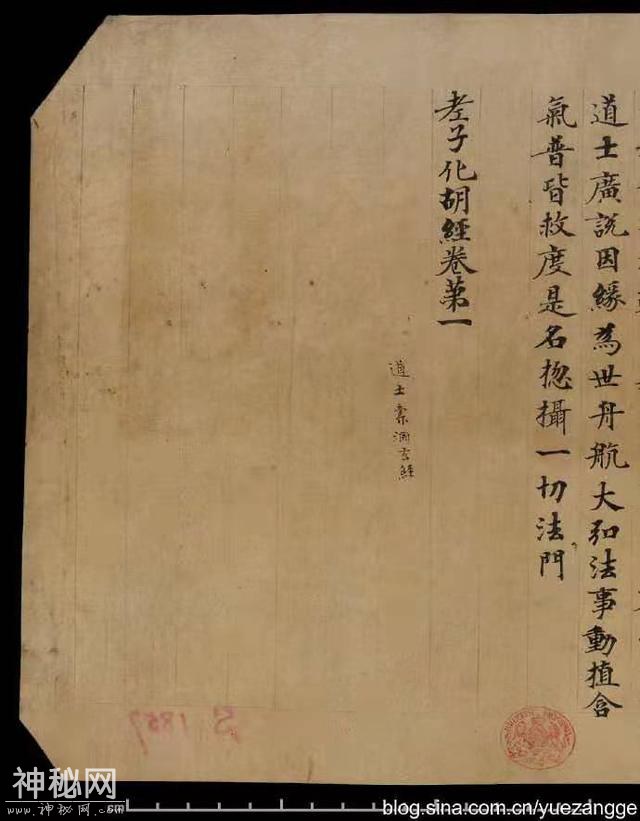 道士廣說因緣為世舟航大弘法事動植含
氣普皆救度是名揔攝一切法門
老子化胡經卷第一
道士索洞玄經
S. 1857
神秘网
www.神秘网.com
blog.sina.com.cn/yuezangge